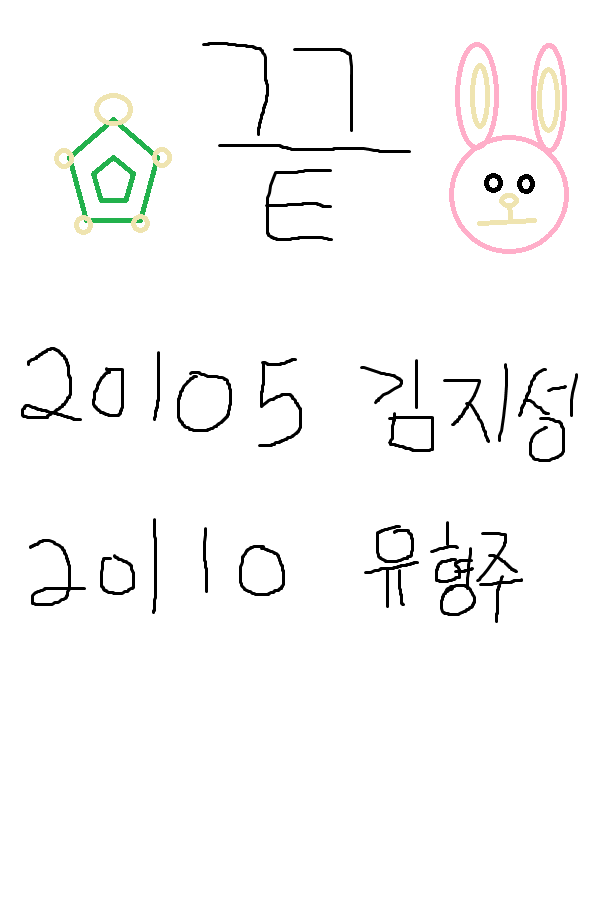 끝
20105 김지성
20110 유형주